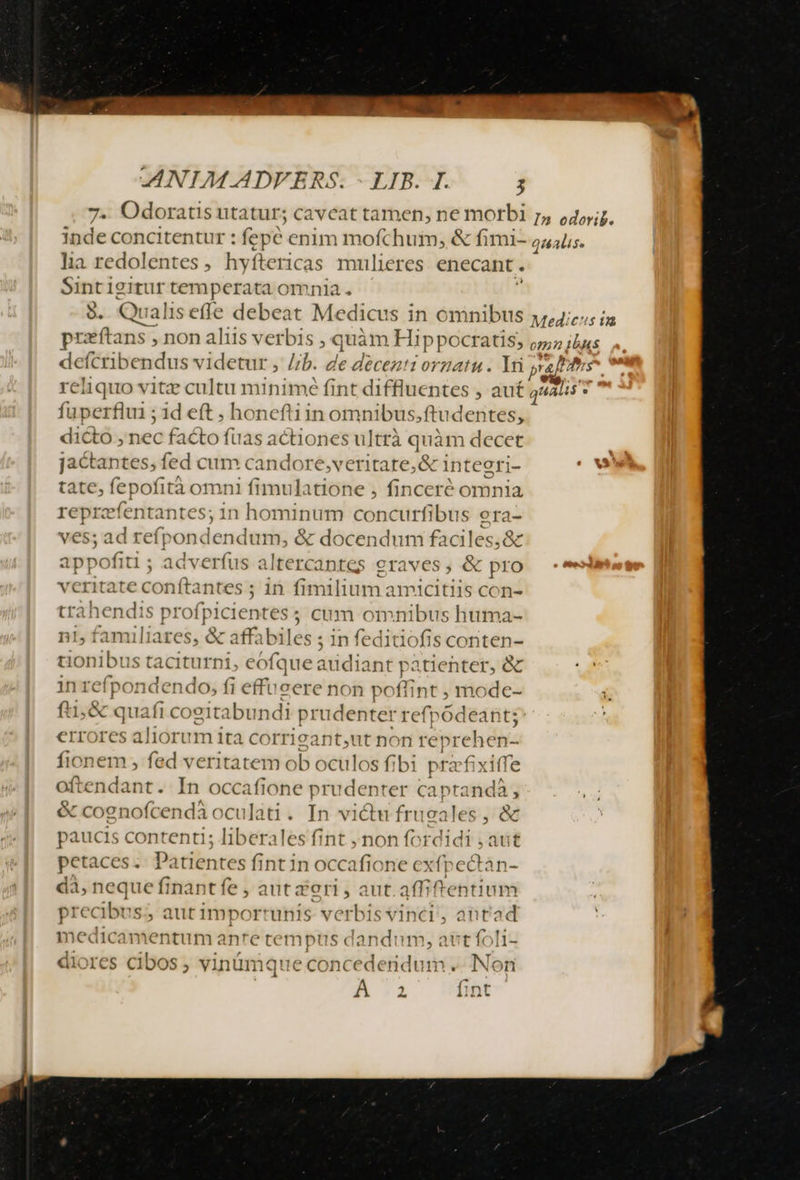 ANIMADVERS. LIB. I. 3
7. Odoratis utatur; caveat tamen, ne morbi
inde concitentur : ſepè enim moſchum, & ſimi-
lia redolentes, hyſtericas mulieres enecant.
Sint igitur temperata omnia.
In odorib.
qualis.
8. Qualis eſſe debeat Medicus in omnibus
præſtans, non aliis verbis, quàm Hippocratis,
deſcribendus videtur, lib. de decenti ornatu. In
reliquo vitæ cultu minimè ſint diffluentes, aut
ſuperflui; id eſt, honeſti in omnibus, ſtudentes,
dicto, nec facto ſuas actiones ultrà quàm decet
jactantes, ſed cum candore, veritate, & integri-
tate, ſepoſità omni ſimulatione, ſincerè omnia
repræſentantes; in hominum concurſibus gra-
ves; ad reſpondendum, & docendum faciles, &
appoſiti; adverſus altercantes graves, & pro
veritate conſtantes; in ſimilium amicitiis con-
trahendis proſpicientes; cum omnibus huma-
ni, familiares, & affabiles; in ſeditioſis conten-
tionibus taciturni, eóſque audiant patienter, &
in reſpondendo, ſi effugere non poſſint, mode-
ſti, & quaſi cogitabundi prudenter reſpõdeant;
errores aliorum ita corrigant, ut non reprehen-
ſionem, ſed veritatem ob oculos ſibi præfixiſſe
oſtendant. In occaſione prudenter captandà,
& cognoſcendà oculati. In victu frugales, &
paucis contenti; liberales ſint, non ſordidi, aut
petaces. Patientes ſint in occaſione exſpectan-
dà, neque ſinant ſe, aut ægri, aut aſſiſtentium
precibus, aut importunis verbis vinci, aut ad
medicamentum ante tempus dandum, aut ſoli-
diores cibos, vinúmque concedendum. Non
A 2 ſint
Medicus in
omnibus
præſtans
qualis